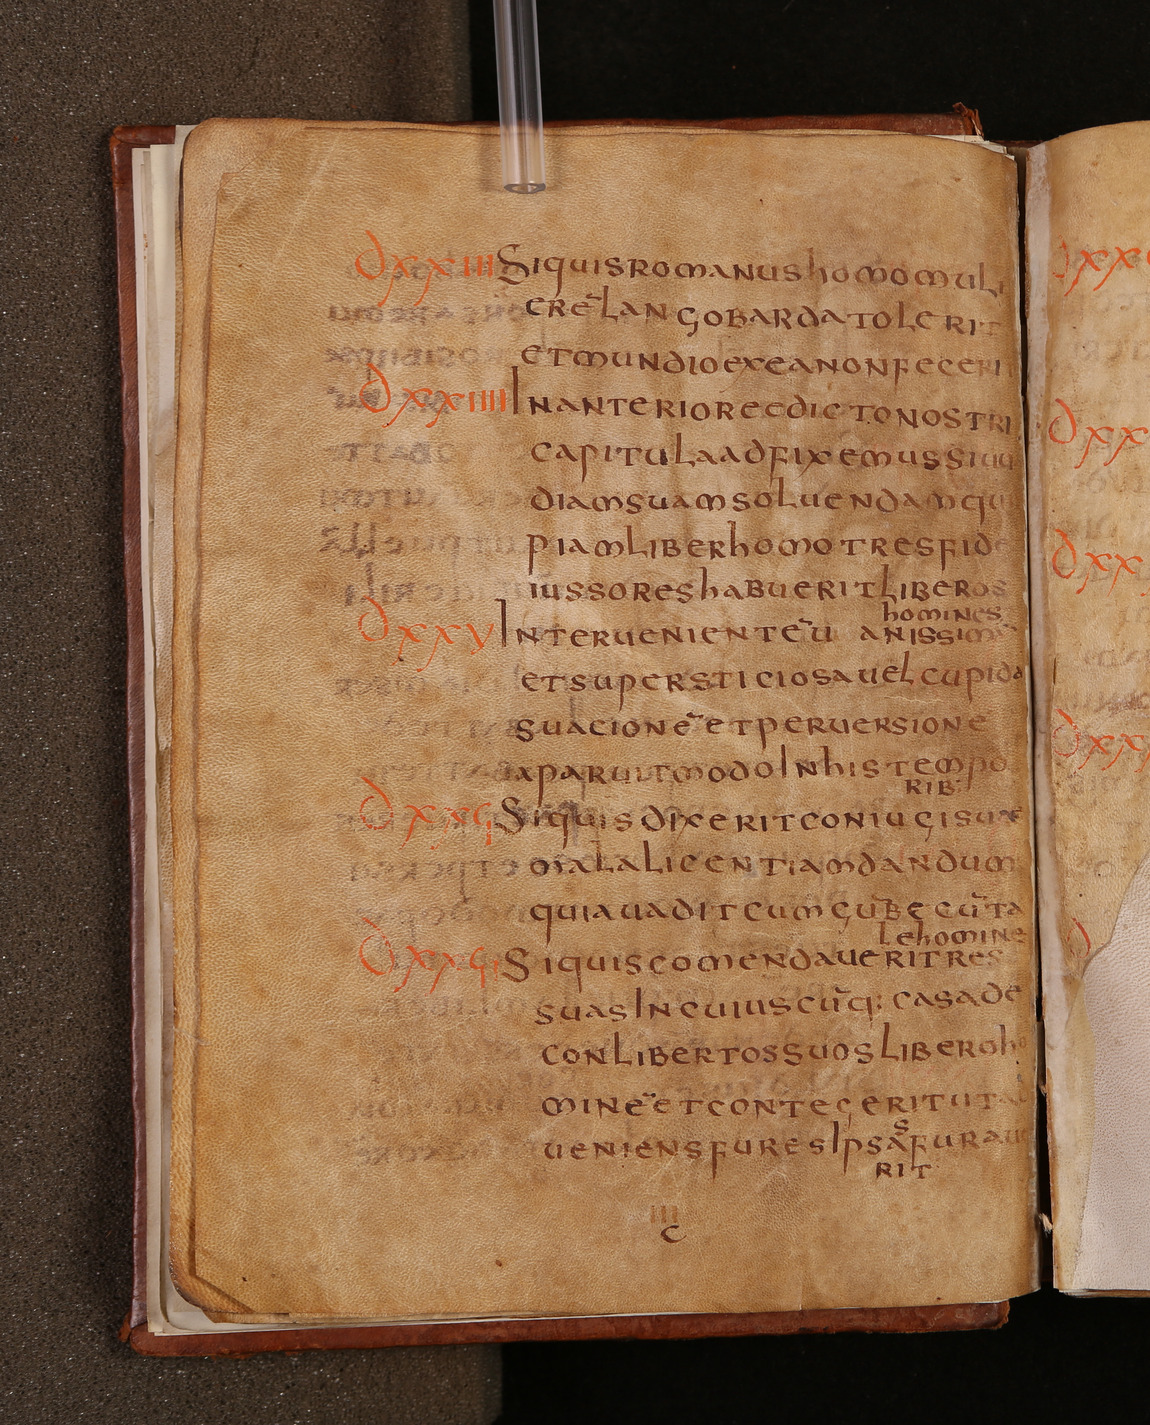 DXXIII Siquisromanushomomuli
erēlangobardatolerit
etmundioexeanonfeceri
DXXIIII Inanterioreedictonostri
capitulaadfixemussiu
diamsuamsoluendamqu
piamliberhomotresfide
iussoreshabueritliberos
homines
DXXV Interuenientēu anissima
etsupersticiosauelcupida
suacionēetperuersione
aparuitmodoInhistempo
rib:
DXXVI Siquisdixeritconiugisuae
malalicentiamdandum
quiauaditcumgūbecūta
lehomine
DXXVII Siquiscomendaueritres
suasIncuiuscūq: casade
conlibertossuosliberoho
minēetcontegeritut
ueniensfuresIpsasfurau
rit
III
C